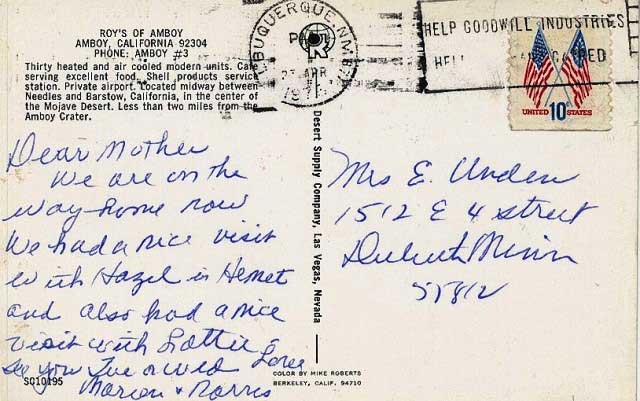 ROY'S OF AMBOY
AMBOY, CALIFORNIA 92304
PHONE: AMBOY #3
Thirty heated and air cooled modern units. Cafe
serving excellent food. Shell products service
station. Private airport. Located midway between
Needles and Barstow, California, in the center of
the Mojave Desert. Less than two miles from the
Amboy Crater.
Dear Mother
We are on the
way home now
We had a nice visit
with Hazel in Hemet
and also had a nice
visit with Lottie
see you Tue or Wed Love
Marion & Norris
SC10195
Desert Supply Company, Las Vegas, Nevada
COLOR BY MIKE ROBERTS
BERKELEY, CALIF. 94710
BUQUERQUE, NM 87
PM
APR
HELP GOODWILL INDUSTRIES
UNITED 10c STATES
Mrs E. Unden
1512 E 4 street
Duluth Minn
55812